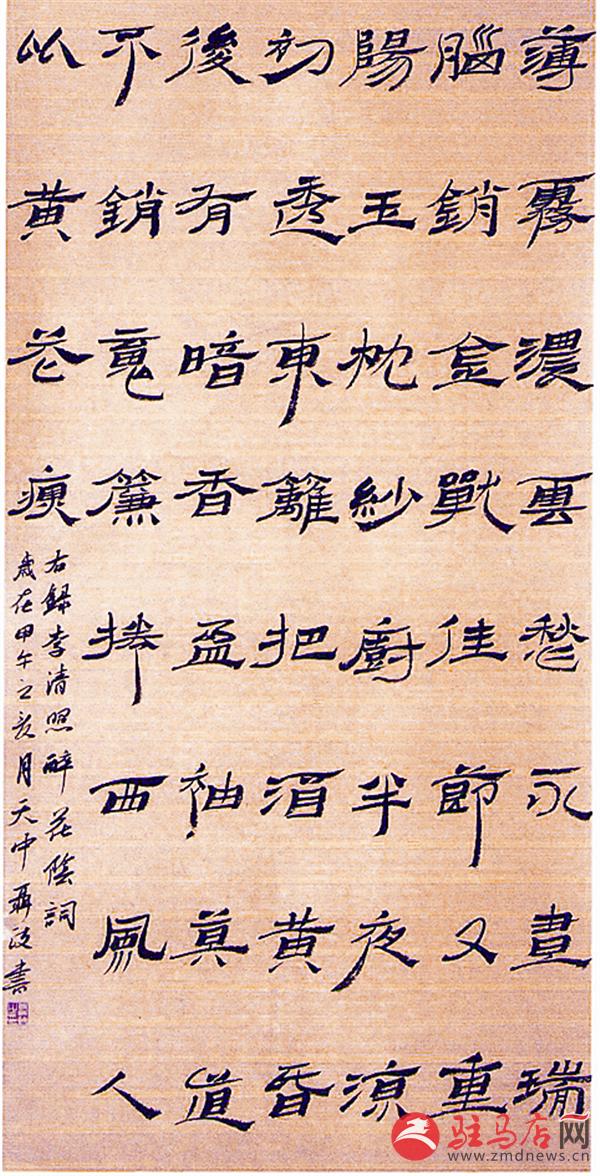 薄霧濃雲愁永晝瑞
腦銷金獸佳節又重
陽玉枕紗廚半夜涼
初透東籬把酒黃昏
後有暗香盈袖莫道
不銷魂簾捲西風人
以黃花瘦
右錄李清照醉花陰詞
歲在甲午之亥月天中聶政書
驻马店网
www.zmdnews.cn